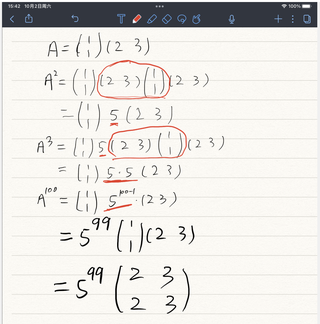 15:42 10月2日周六
100%
A = (1 1) (2 3)
A² = (1 1) (2 3) (1 1) (2 3)
= (1 1) 5 (2 3)
A³ = (1 1) 5 (2 3) (1 1) (2 3)
= (1 1) 5·5 (2 3)
A¹⁰⁰ = (1 1) 5¹⁰⁰⁻¹·(2 3)
= 5⁹⁹ (1 1) (2 3)
= 5⁹⁹ (2 3
2 3)